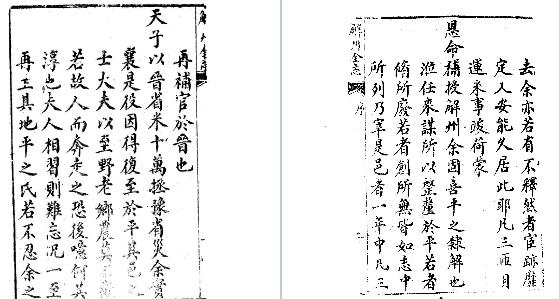 再補官於晉也
天子以晉省米十萬拯豫省災余實
襄是役因得復至於平其邑之
士大夫以至野老鄉農莫不
若故人而奔走之恐後噫何其
淳也夫人相習則難忘況一至
再至其地平之民若不忍余之
解州全志
去余亦若有不釋然者宦跡靡
定又安能久居此耶凡三匝月
運米事竣荷蒙
恩命補授解州余固喜平之隸解也
涖任來謀所以整釐於平若者
脩所廢若者創所無皆如志中
所列乃宰是邑者一年中凡三
解州全志
序